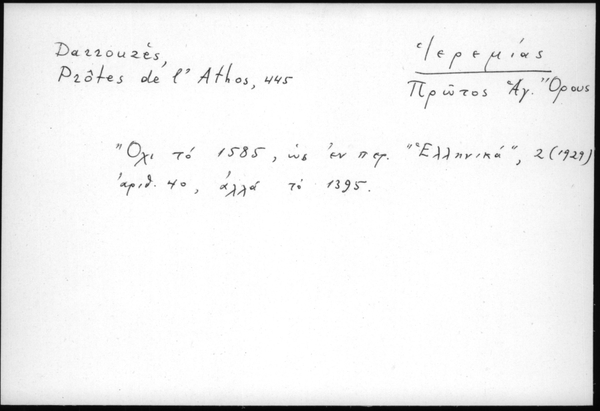 Darrouzès,
Prôtes de l' Athos, 445
Ἱερεμίας
Πρῶτος Ἁγ. Ὄρους
Ὄχι τό 1585, ὡς ἐν περ. "Ἑλληνικά", 2 (1929)
ἀριθ. 40, ἀλλά τό 1395.